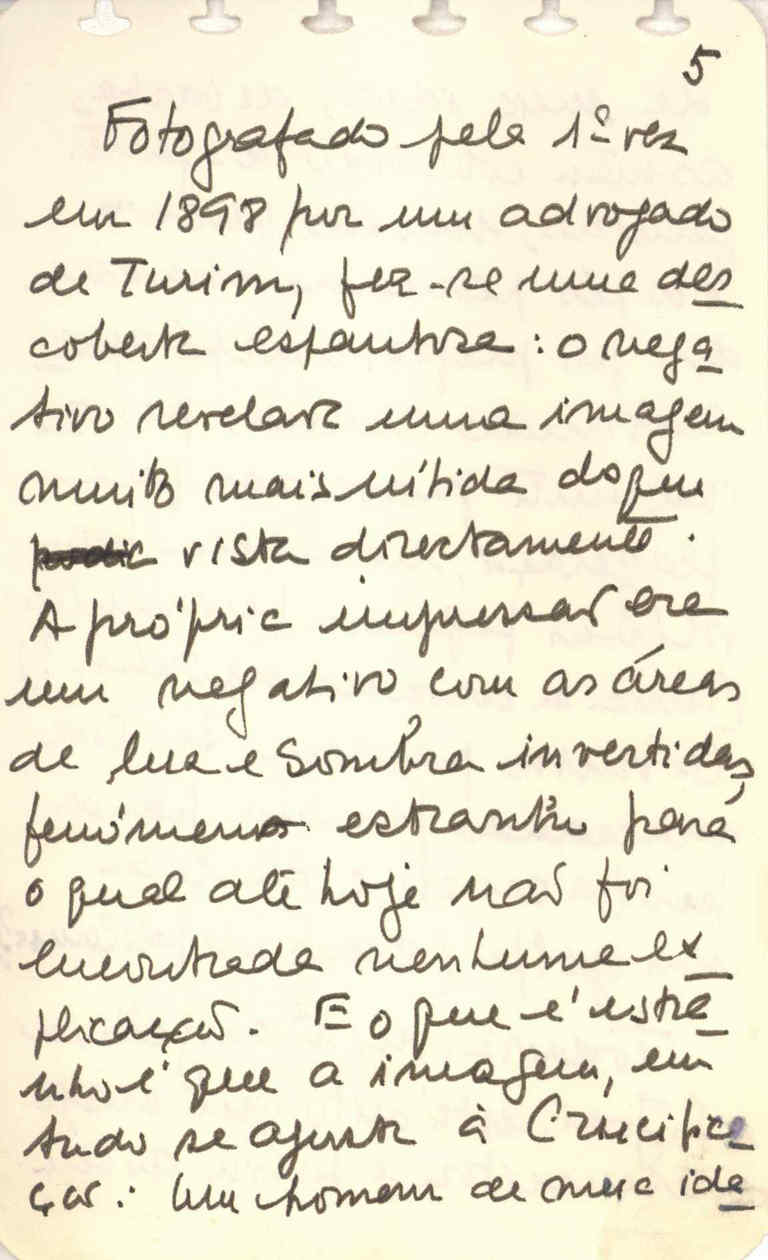 5
Fotografado pela 1ª vez
em 1898 por um advogado
de Turim, fez-se uma des
coberta espantosa: o nega
tivo revelava uma imagem
muito mais nítida do que
vista directamente.
A própria impressão era
um negativo com as áreas
de luz e sombra invertidas,
fenómeno estranho para
o qual até hoje não foi
encontrada nenhuma ex
plicação. E o que é estra
nho é que a imagem, em
tudo se ajusta à Crucifica
ção: Um homem de meia ida